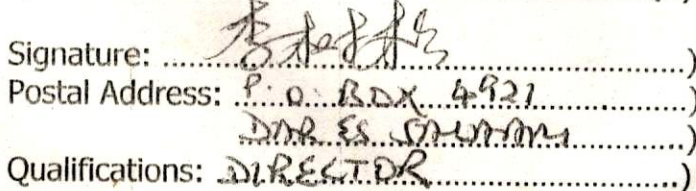 Signature: ........李........)
Postal Address: P. O. BOX 4921........)
DAR ES SALAAM........)
Qualifications: DIRECTOR........)